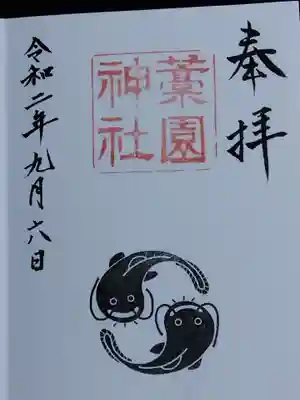 奉拝
藁園
神社
令和二年九月六日